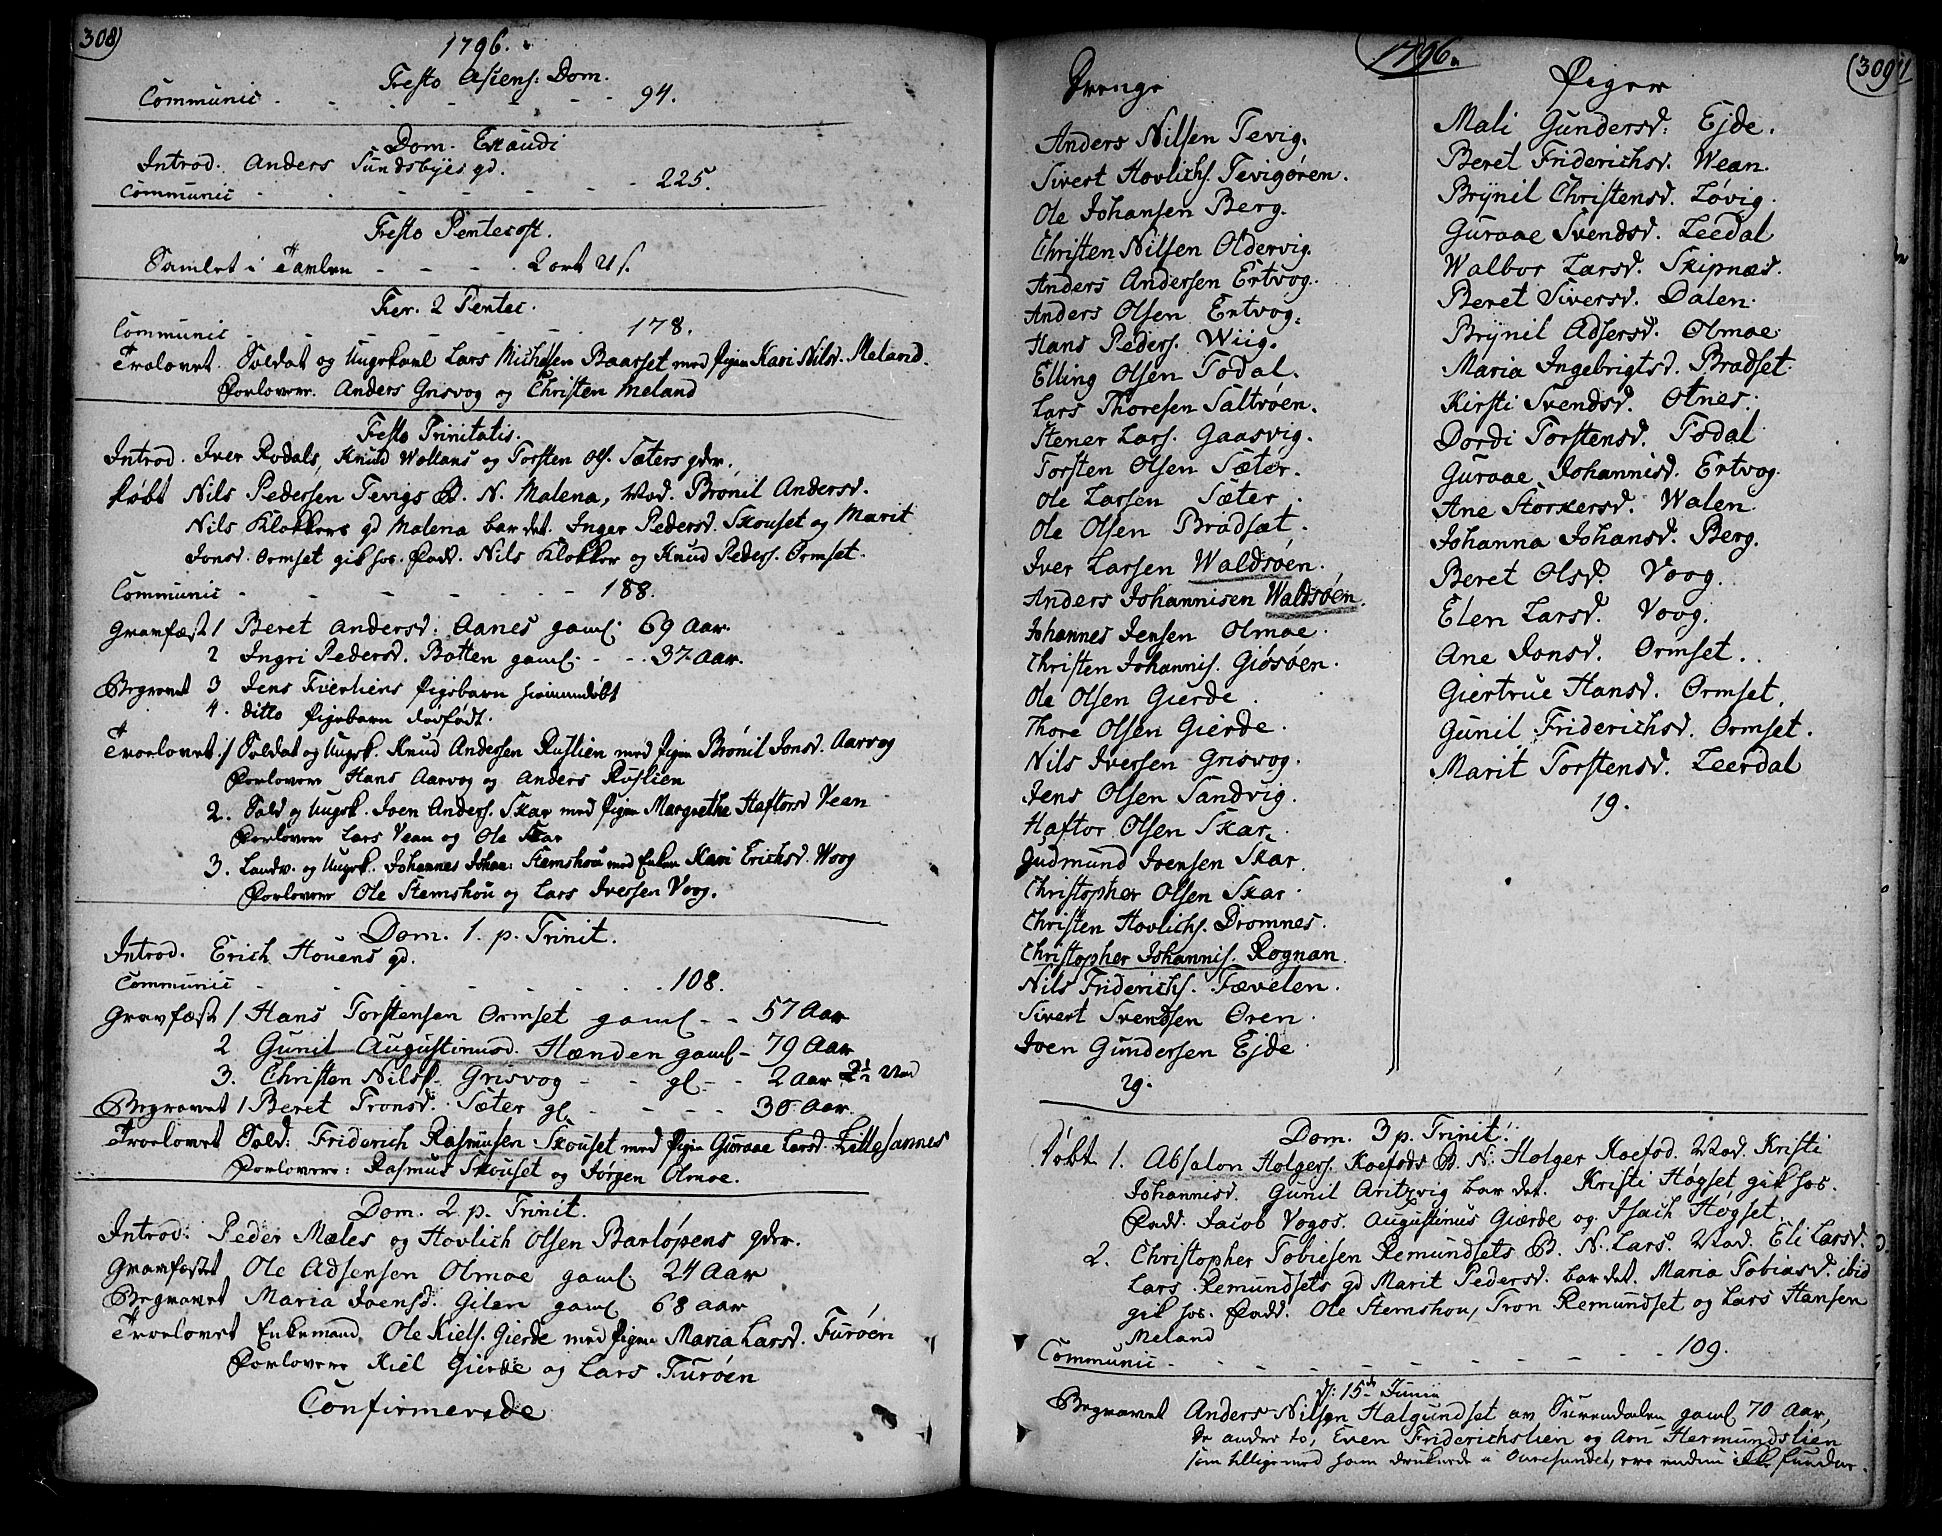 308)
1796.
Festo Asiens: Dom.
Communic - - - - - - - 94.
Dom. Exaudi
Introd. Anders Sundsbyes gd.
Communic - - - - - - - 225.
Festo Pentecost.
Samlet i Tavlen - - - - 2 ort
Fer. 2 Pentec.
Communic - - - - - - 178.
Trolovet Soldat og Ungkarl Lars Michelsen Baarset med Pigen Kari Nilsd. Meland.
Forlovere. Anders Grisvog og Christen Meland
Festo Trinitatis.
Introd. Iver Rodals, Knud Wollans og Torsten Ols. Sæters gdr.
Døbt Nils Pedersen Tevigs B. N. Malena, Mod. Brønil Andersd.
Nils Klokkers gd Malena bar det. Inger Pedersd. Skouset og Marit
Jonsd. Ormset gik hos. Fadd. Nils Klokker og Knud Peders. Ormset.
Communic - - - - - - - 188.
Gravfæst 1 Beret Andersd: Aanes gaml. 69 Aar.
2 Ingri Pedersd. Botten gaml. - - 37 Aar.
Begravet 3 Jens Fierliens Pigebarn hiemmedøbt
4. ditto Pigebarn dødfødt.
Troelovet 1 Soldat og Ungk. Knud Andersen Ruslien med Pigen Brønil Jonsd. Aarvog
Forlovere Hans Aarvog og Anders Ruslien
2. Sold og Ungk. Joen Anders. Skar med Pigen Margrethe Haftorsd Vean
Forlovere Lars Vean og Ole Skar
3. Landv. og Ungk. Johannes Johan: Stemshou med Enken Kari Erichsd. Woog
Forlovere Ole Stemshou og Lars Iversen Voog.
Dom. 1. p. Trinit.
Introd. Erich Houens gd.
Communic - - - - - - - 108.
Gravfæst 1 Hans Torstensen Ormset gaml - - 57 Aar
2 Gunil Augustinusd. Hænden gaml - 79 Aar
3. Christen Nils. Grisvog - - gl - - 2 Aar
Begravet 1 Beret Tronsd. Sæter gl. - - - - 30 Aar.
Troelovet Sold: Friderich Rasmusen Skouset med Pigen Guraae Larsd. Lillesannes
Forlovere: Rasmus Skouset og Jørgen Olmoe.
Dom. 2 p. Trinit.
Introd: Peder Mæles og Hovlich Olsen Barløpens gdr.
Gravfæstet Ole Adsensen Olmoe gaml 24 Aar
Begravet Maria Joensd. Gilen gaml 68 aar
Troelovet Enkemand Ole Kiels. Gierde med Pigen Maria Larsd. Furøen
Forlovere Kiel Gierde og Lars Furøen
Confirmerede
1796.
(309
Drenge
Anders Nilsen Tevig.
Sivert Hovlichs. Tevigøren.
Ole Johansen Berg.
Christen Nilsen Oldervig.
Anders Andersen Ertvog.
Anders Olsen Ertvog.
Hans Peders. Wiig.
Elling Olsen Todal.
Lars Thoresen Saltrøen.
Stener Lars. Gaasvig.
Torsten Olsen Sæter.
Ole Larsen Sæter.
Ole Olsen Bradsæt.
Iver Larsen Waldsøen.
Anders Johannisen Waldsøen.
Johannes Jensen Olmoe.
Christen Johannis. Giøsøen.
Ole Olsen Gierde.
Thore Olsen Gierde.
Nils Iversen Grisvog.
Jens Olsen Sandvig.
Haftor Olsen Skar.
Gudmund Joensen Skar.
Christopher Olsen Skar.
Christen Hovlichs. Dromnes.
Christopher Johannis. Rognan.
Nils Friderichs. Fævelen.
Sivert Svendsen Øren.
Joen Gundersen Ejde.
29.
Piger
Mali Gundersd: Ejde.
Beret Friderichsd. Wean.
Brynil Christensd. Løvig.
Guraae Svendsd. Leedal
Walbor Larsd. Skipnæs.
Beret Siversd. Dalen.
Brynil Adsersd. Olmoe.
Maria Ingebrigtsd. Bradset.
Kirsti Svendsd. Otnes.
Dordi Torstensd. Todal
Guraae Johannisd. Ertvog.
Ane Storkersd. Walen
Johanna Johansd. Berg.
Beret Olsd. Voog.
Elen Larsd. Voog.
Ane Jonsd. Ormset.
Giertrue Hansd. Ormset.
Gunil Friderichsd. Ormset.
Marit Torstensd. Leerdal
19.
Dom. 3 p. Trinit:
Døbt 1. Absalon Holgers. Koefods B. N. Holger Koefod. Mod. Kristi
Johannisd. Gunil Aritzvig bar det. Kristi Høgset gik hos.
Fadd. Jacob Vogos. Augustinus Gierde og Isach Høgset
2. Christopher Tobiesen Remundsets B. N. Lars. Mod. Eli Larsd.
Lars Remundsets gd Marit Pedersd. bar det. Maria Tobiasd. ibid
gik hos. Fadd. Ole Stemshou, Tron Remundset og Lars Hansen
Meland
Communic - - - - - - - - - 109.
d: 15de Junii
Begravet Anders Nilsen Halgundset av Surendalen gaml 70 Aar,
De andre to, Even Friderichslien og Aon Hermundslien
som tillige med ham druknede i Ouresundet, ere endnu ikke fundne.